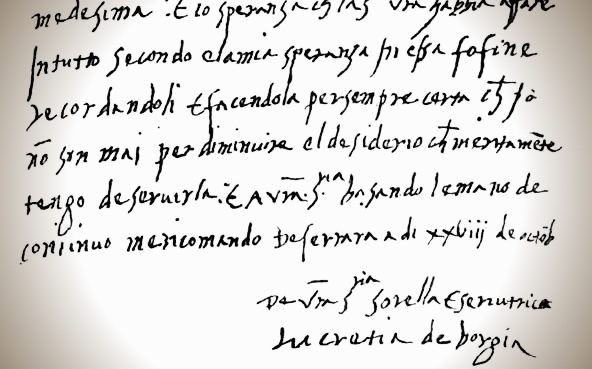 medesima. E io speranza ch
In tutto secondo e la mia speranza fo fine
recordandoli E facendola per sempre certa ch
nō son mai per diminuire el desiderio ch meritamēte
tengo de seruirla: E A vr̄a S.ria basando le mano de
continuo me ricomando De ferrara a di xxviij de octōb
De vr̄a S.ria Sorella E seruitrice
Lucretia de borgia